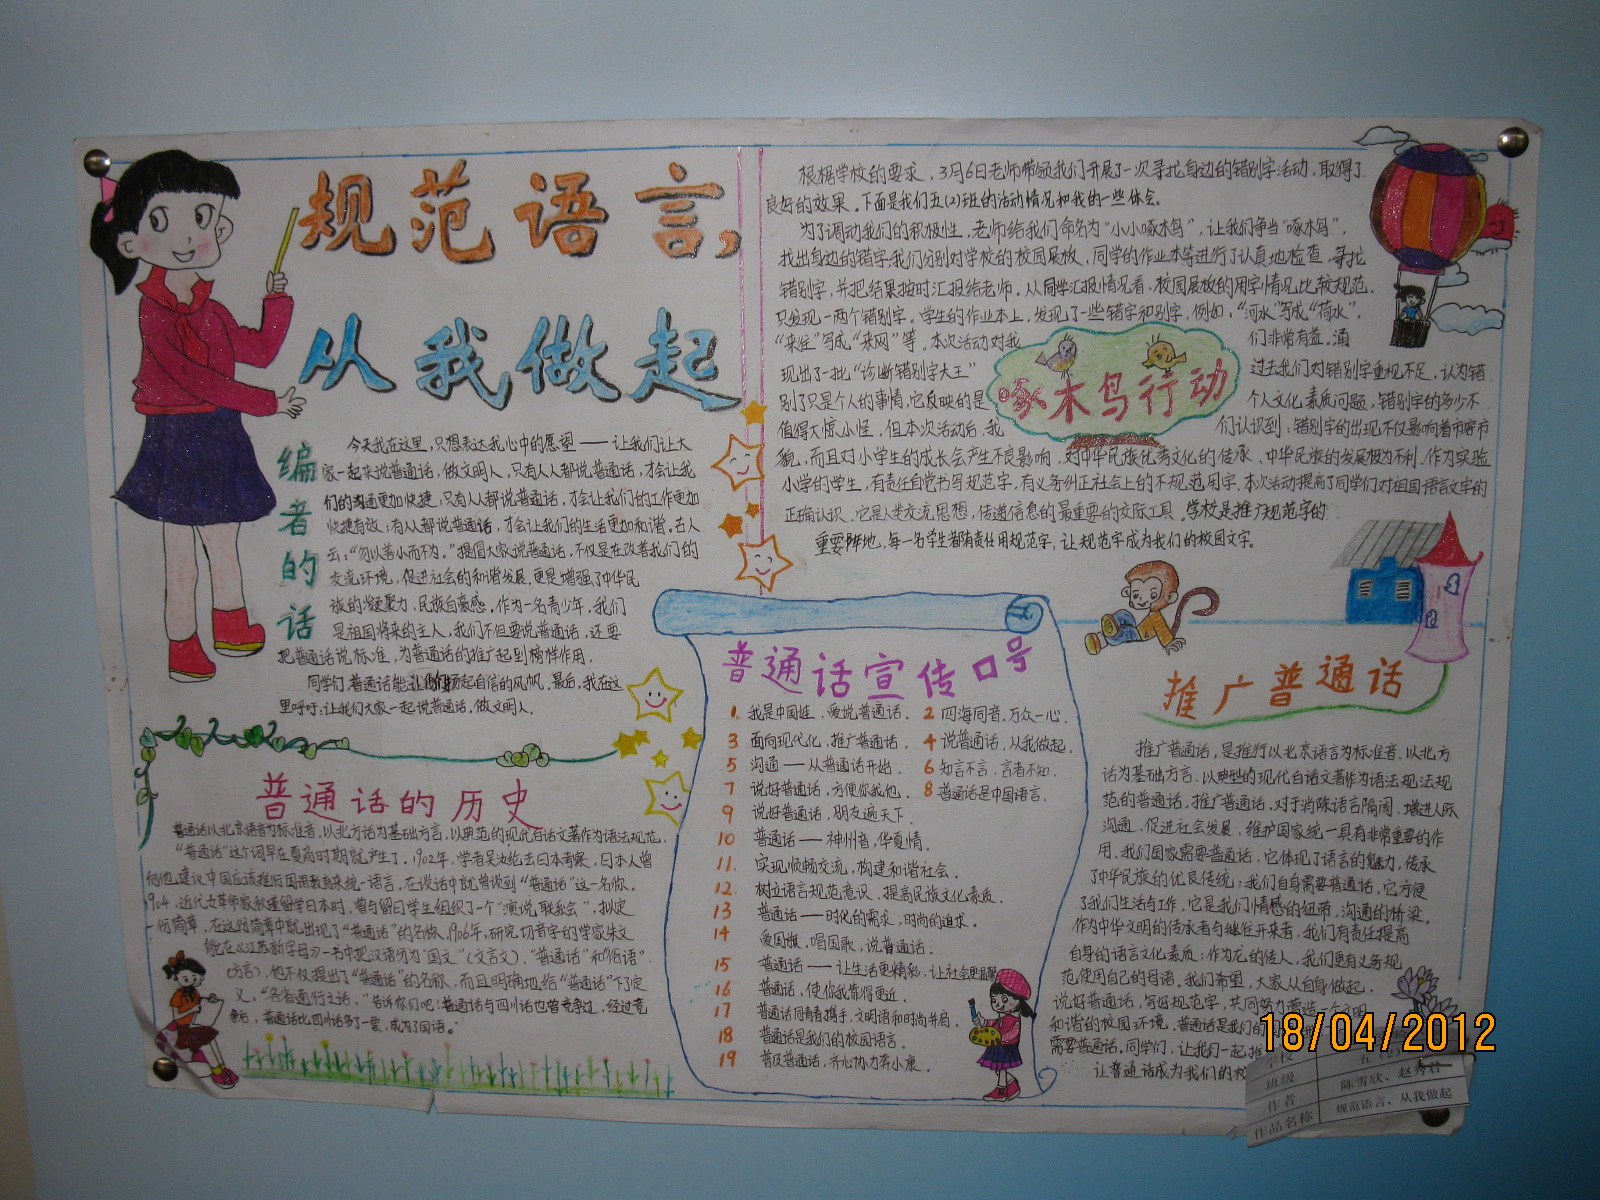 规范语言,
从我做起
编者的话
今天我在这里，只想表达我心中的愿望——让我们让大
家一起来说普通话，做文明人，只有人人都说普通话，才会让我
们的沟通更加快捷，只有人人都说普通话，才会让我们的工作更加
快捷有效；有人人都说普通话，才会让我们的生活更加和谐。古人
云："勿以善小而不为。"提倡大家说普通话，不仅是在改善我们的
交流环境，促进社会的和谐发展，更是增强了中华民
族的凝聚力，民族自豪感。作为一名青少年，我们
是祖国将来的主人，我们不但要说普通话，还要
把普通话说标准，为普通话的推广起到榜样作用．
同学们，普通话能让我们扬起自信的风帆．最后，我在这
里呼吁：让我们大家一起说普通话，做文明人．
普通话的历史
普通话以北京语音为标准音，以北方话为基础方言，以典范的现代白话文著作为语法规范．
"普通话"这个词早在更高时期就产生了．1902年，学者吴汝纶去日本考察，日本人曾
向他建议中国应该推行国语教育来统一语言，在谈话中就曾谈到"普通话"这一名称．
1904，近代女革命家秋瑾留学日本时，曾与留日学生组织了一个"演说联系会"，拟定
一份简章，在这份简章中就出现了"普通话"的名称．1906年，研究切音字的学家朱文
熊在《江苏新字母》一书中把汉语分为"国文"（文言文）、"普通话"和"俗语"
（方言），他不仅提出了"普通话"的名称，而且明确地给"普通话"下了定
义，"各省通行之话，"告诉你们吧：普通话与四川话也曾竞争过，经过竞
争后，普通话比四川话多了一票，成为了国语。
根据学校的要求，3月6日老师带领我们开展了一次寻找身边的错别字活动，取得了
良好的效果。下面是我们五(2)班的活动情况和我的一些体会。
为了调动我们的积极性，老师给我们命名为"小小啄木鸟"，让我们争当"啄木鸟"，
找出身边的错字，我们分别对学校的校园展板，同学的作业本等进行了认真地检查，寻找
错别字，并把结果按时汇报给老师．从同学汇报情况看，校园展板的用字情况比较规范．
只发现一两个错别字．学生的作业本上，发现了一些错字和别字，例如，"河水"写成"荷水"，
"来往"写成"来网"等．本次活动对我们非常有益，涌
现出了一批"诊断错别字大王"过去我们对错别字重视不足，认为错
别字只是个人的事情，它反映的是个人文化素质问题，错别字的多少不
值得大惊小怪，但本次活动后，我们认识到：错别字的出现不仅影响着市容市
貌，而且对小学生的成长会产生不良影响，对中华民族优秀文化的传承、中华民族的发展极为不利．作为实验
小学的学生，有责任自觉书写规范字，有义务纠正社会上的不规范用字．本次活动提高了同学们对祖国语言文字的
正确认识．它是人类交流思想，传递信息的最重要的交际工具．学校是推广规范字的
重要阵地，每一名学生都有责任用规范字，让规范字成为我们的校园文字。
啄木鸟行动
普通话宣传口号
1. 我是中国娃，爱说普通话． 2 四海同音，万众一心．
3 面向现代化，推广普通话． 4 说普通话，从我做起．
5 沟通——从普通话开始． 6 知言不言，言者不知．
7 说好普通话，方便你我他． 8 普通话是中国语言．
9 说好普通话，朋友遍天下．
10 普通话——神州音，华夏情．
11. 实现顺畅交流，构建和谐社会．
12. 树立语言规范意识，提高民族文化素质．
13 普通话——时代的需求，时尚的追求．
14 爱国旗，唱国歌，说普通话．
15 普通话——让生活更精彩，让社会更温馨
16 普通话，使你我靠得更近．
17 普通话同青春携手，文明语和时尚并肩．
18 普通话是我们的校园语言．
19 普及普通话，齐心协力奔小康．
推广普通话
推广普通话，是推行以北京语言为标准音，以北方
话为基础方言，以典型的现代白话文著作为语法规法规
范的普通话．推广普通话，对于消除语言隔阂，增进人际
沟通，促进社会发展，维护国家统一具有非常重要的作
用．我们国家需要普通话，它体现了语言的魅力，传承
了中华民族的优良传统；我们自身需要普通话，它方便
了我们生活与工作，它是我们情感的纽带，沟通的桥梁．
作为中华文明的传承者与继往开来者，我们有责任提高
自身的语言文化素质；作为龙的传人，我们更有义务规
范使用自己的母语．我们希望，大家从自身做起，
说好普通话，写好规范字，共同努力营造一个文明
和谐的校园环境．普通话是我们的
需要普通话，同学们，让我们一起推
让普通话成为我们的校
学校
班级 五
作者 陈雪欣、赵秀君
作品名称 规范语言，从我做起
18/04/2012